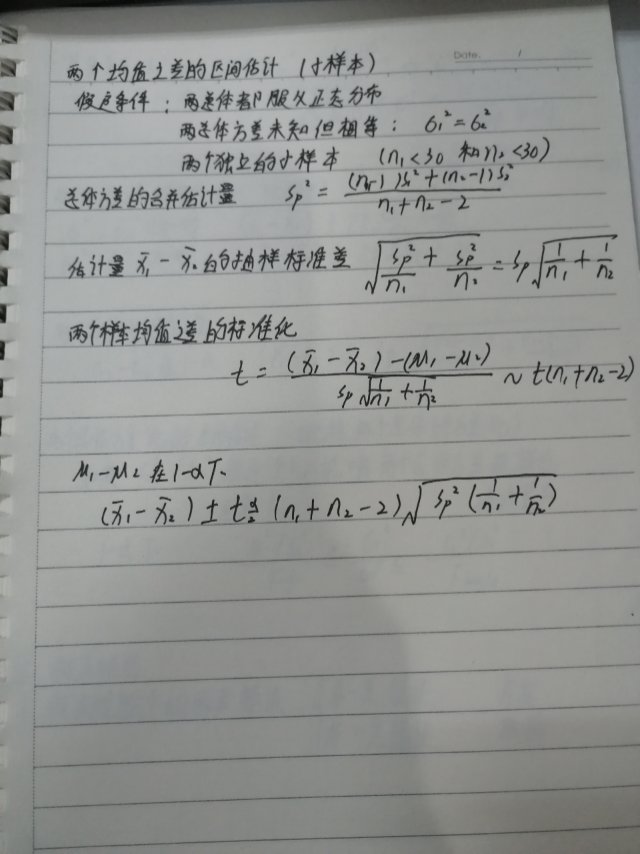 Date. /
两个均值之差的区间估计 (小样本)
假定条件: 两总体都服从正态分布
两总体方差未知但相等: σ₁² = σ₂²
两个独立的小样本 (n₁<30 和 n₂<30)
总体方差的合并估计量 sp² = ((n₁-1)s₁² + (n₂-1)s₂²)/(n₁+n₂-2)
估计量 x̄₁ - x̄₂ 的抽样标准差 √(sp²/n₁ + sp²/n₂) = sp√(1/n₁ + 1/n₂)
两个样本均值之差的标准化
t = ((x̄₁ - x̄₂) - (μ₁ - μ₂))/(sp√(1/n₁ + 1/n₂)) ~ t(n₁+n₂-2)
μ₁-μ₂ 在 1-α下
(x̄₁ - x̄₂) ± t α/2 (n₁+n₂-2)√(sp²(1/n₁ + 1/n₂))